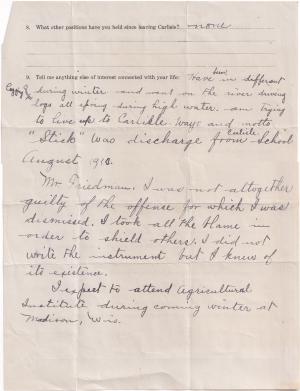 8. What other positions have you held since leaving Carlisle? none
9. Tell me anything else of interest connected with your life: Have been in different
during winter and went on the river driving
logs all spring during high water. am trying
to live up to Carlisle ways and motto
"Stick" Was discharge from School
August 1910.
Mr Friedman. I was not altogether
guilty of the offense for which I was
dismised. I took all the blame in
order to shiell others. I did not
write the instrument but I knew of
its existence.
I expect to attend Agricultural
Institute during coming winter at
Madison, Wis.